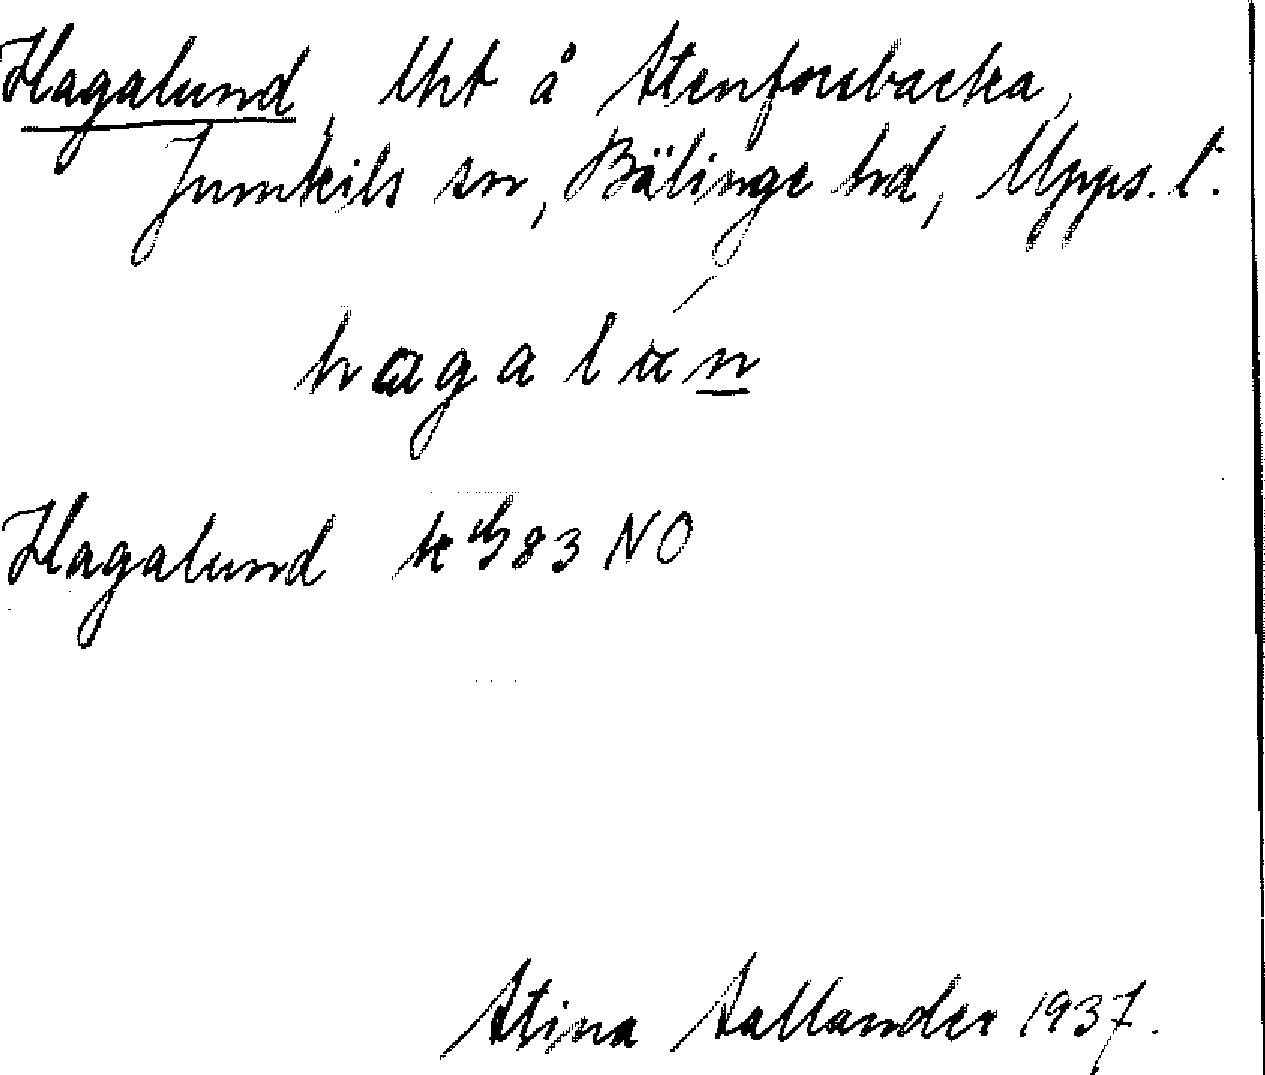 Hagalund, lht å Stenforsbacka,
Jumkils sn, Bälinge hd, Upps. l.
hagalán
Hagalund k 83 NO
Stina Sallander 1937.